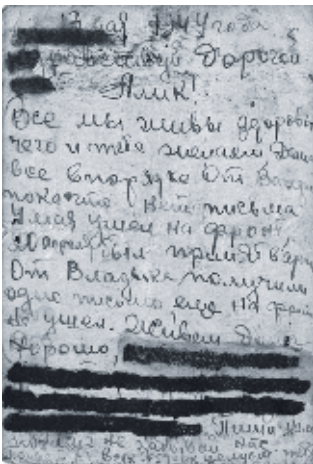 13 мая 1944 года
Здравствуй Дорогой
Алик!
Все мы живы здоровы
чего и тебе желаем Дома
все в порядке От
пока что нет письма
9 мая ушел на фронт,
был принят
От Владька получили
одно письмо еще на фронт
не ушел. Живем Дома
Хорошо,
Пиши
не забывай нас
всех